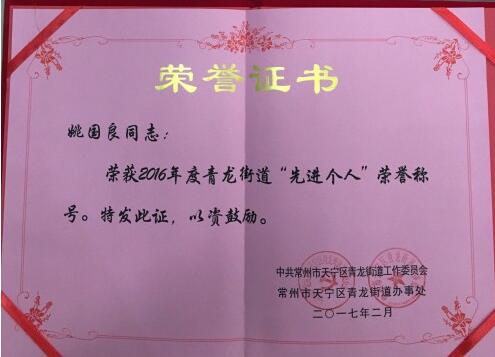 荣誉证书
姚国良同志：
荣获2016年度青龙街道“先进个人”荣誉称
号。特发此证，以资鼓励。
中共常州市天宁区青龙街道工作委员会
常州市天宁区青龙街道办事处
二〇一七年二月